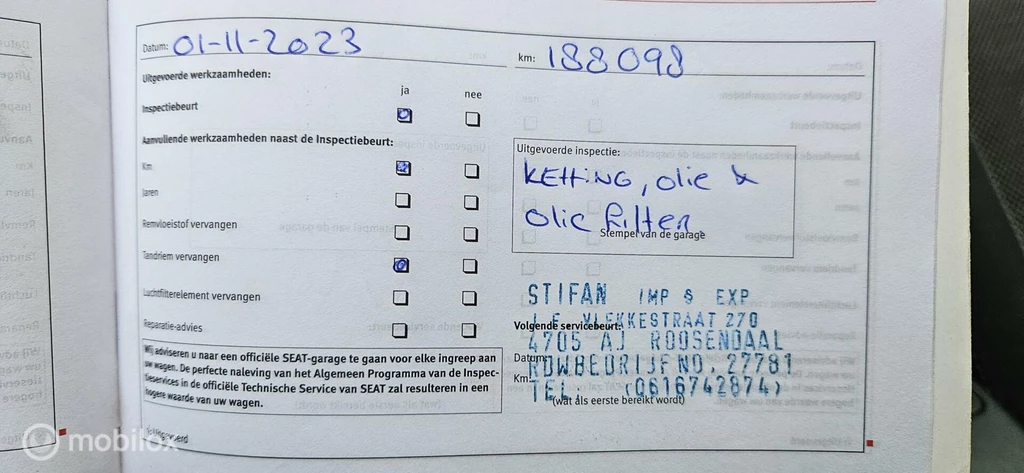 Datum: 01-11-2023
km: 188098
Uitgevoerde werkzaamheden:
ja nee
Inspectiebeurt
Aanvullende werkzaamheden naast de Inspectiebeurt:
Km
Jaren
Remvloeistof vervangen
Tandriem vervangen
Luchtfilterelement vervangen
Reparatie-advies
Wij adviseren u naar een officiële SEAT-garage te gaan voor elke ingreep aan
uw wagen. De perfecte naleving van het Algemeen Programma van de Inspec-
tieservices in de officiële Technische Service van SEAT zal resulteren in een
hogere waarde van uw wagen.
Uitgevoerde inspectie:
KETTING, olie &
olie filter
Stempel van de garage
STIFAN IMP & EXP
VLEKKESTRAAT 270
Volgende servicebeurt:
4705 AJ ROOSENDAAL
Datum:
RDWBEDRIJFNO. 27781
Km:
TEL. (0616742874)
(wat als eerste bereikt wordt)
mobilox